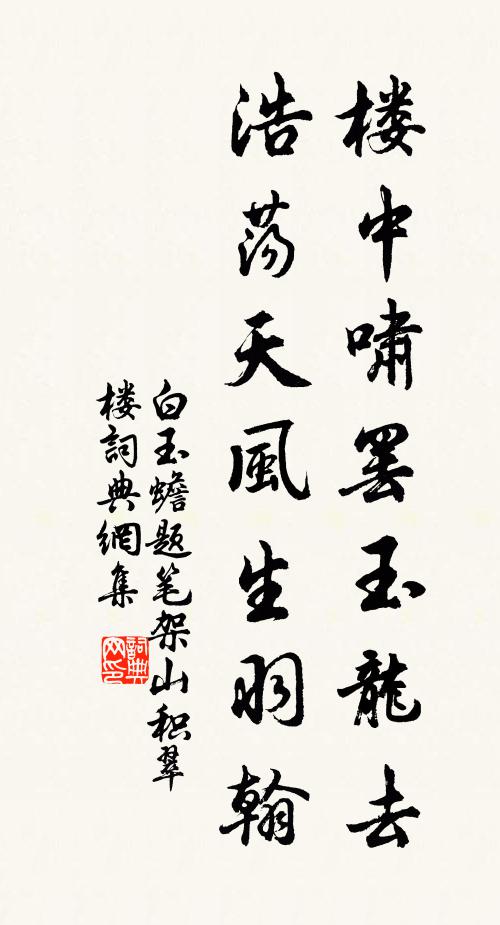 楼中啸罢玉龍去
浩荡天風生羽翰
白玉蟾题笔架山积翠
楼詞典網集
詞典
网印